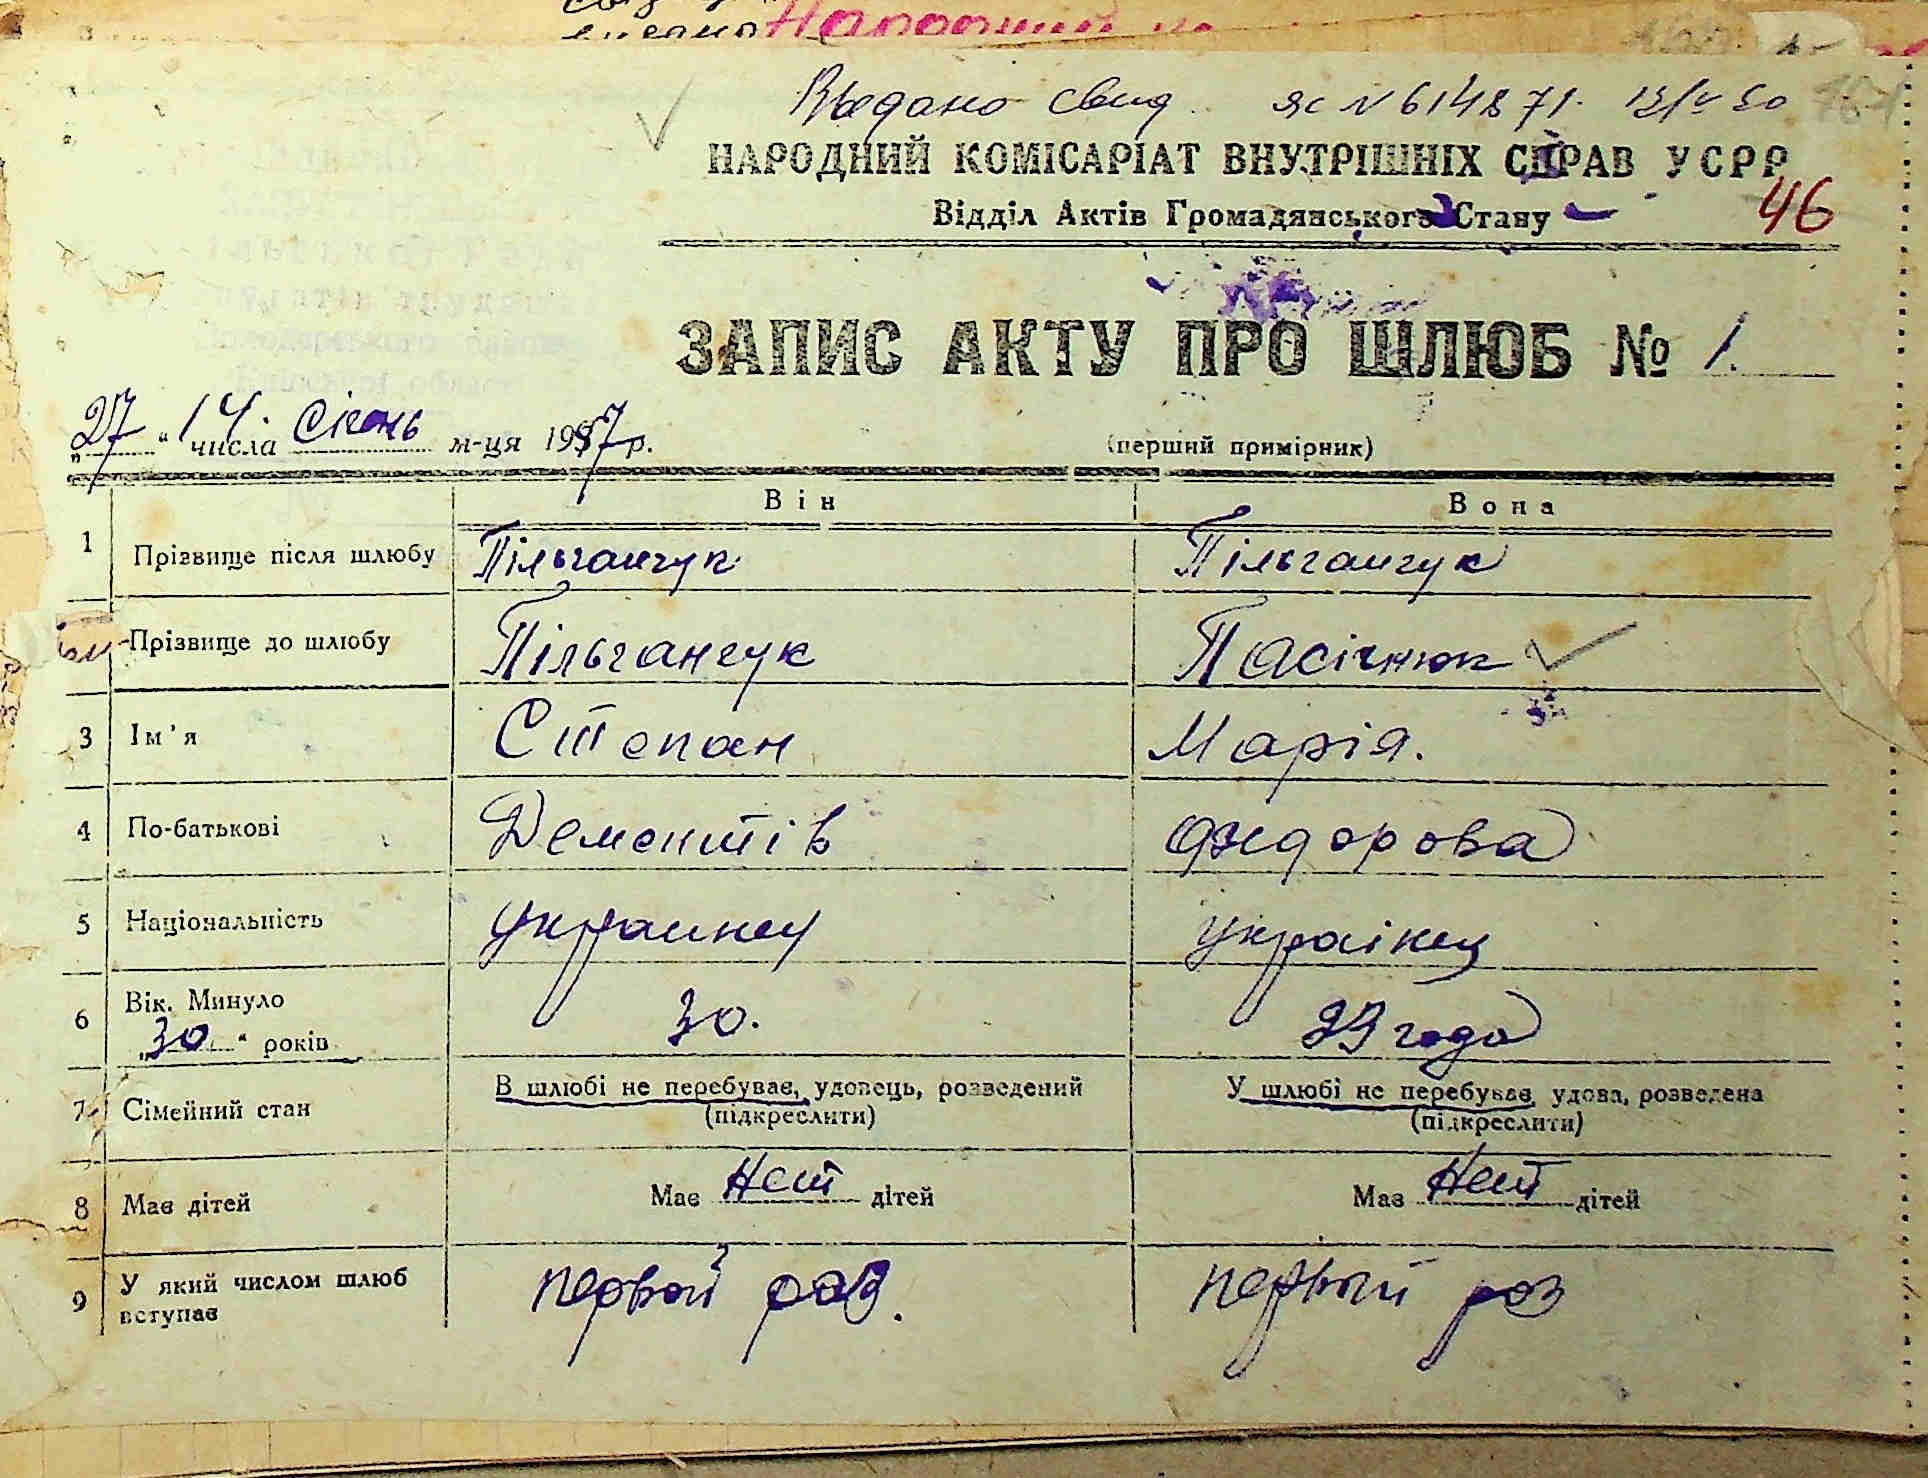 Народний
Выдано свид. ЯС № 614871. 13/V 50
НАРОДНИЙ КОМІСАРІАТ ВНУТРІШНІХ СПРАВ УСРР
Відділ Актів Громадянського Стану
46
ЗАПИС АКТУ ПРО ШЛЮБ № 1.
„27“ 14. числа Січень м-ця 1937 р.
(перший примірник)
Він Вона
1 Прізвище після шлюбу Пільганчук Пільганчук
Прізвище до шлюбу Пільганчук Пасічнюк
3 Ім'я Степан Марія.
4 По-батькові Дементів Федорова
5 Національність украинец українец
6 Вік. Минуло
„30“ років 30. 29 года
7 Сімейний стан В шлюбі не перебуває, удовець, розведений У шлюбі не перебуває, удова, розведена
(підкреслити) (підкреслити)
8 Має дітей Має Нет дітей Має Нет дітей
9 У який числом шлюб
вступає первой раз. первый роз